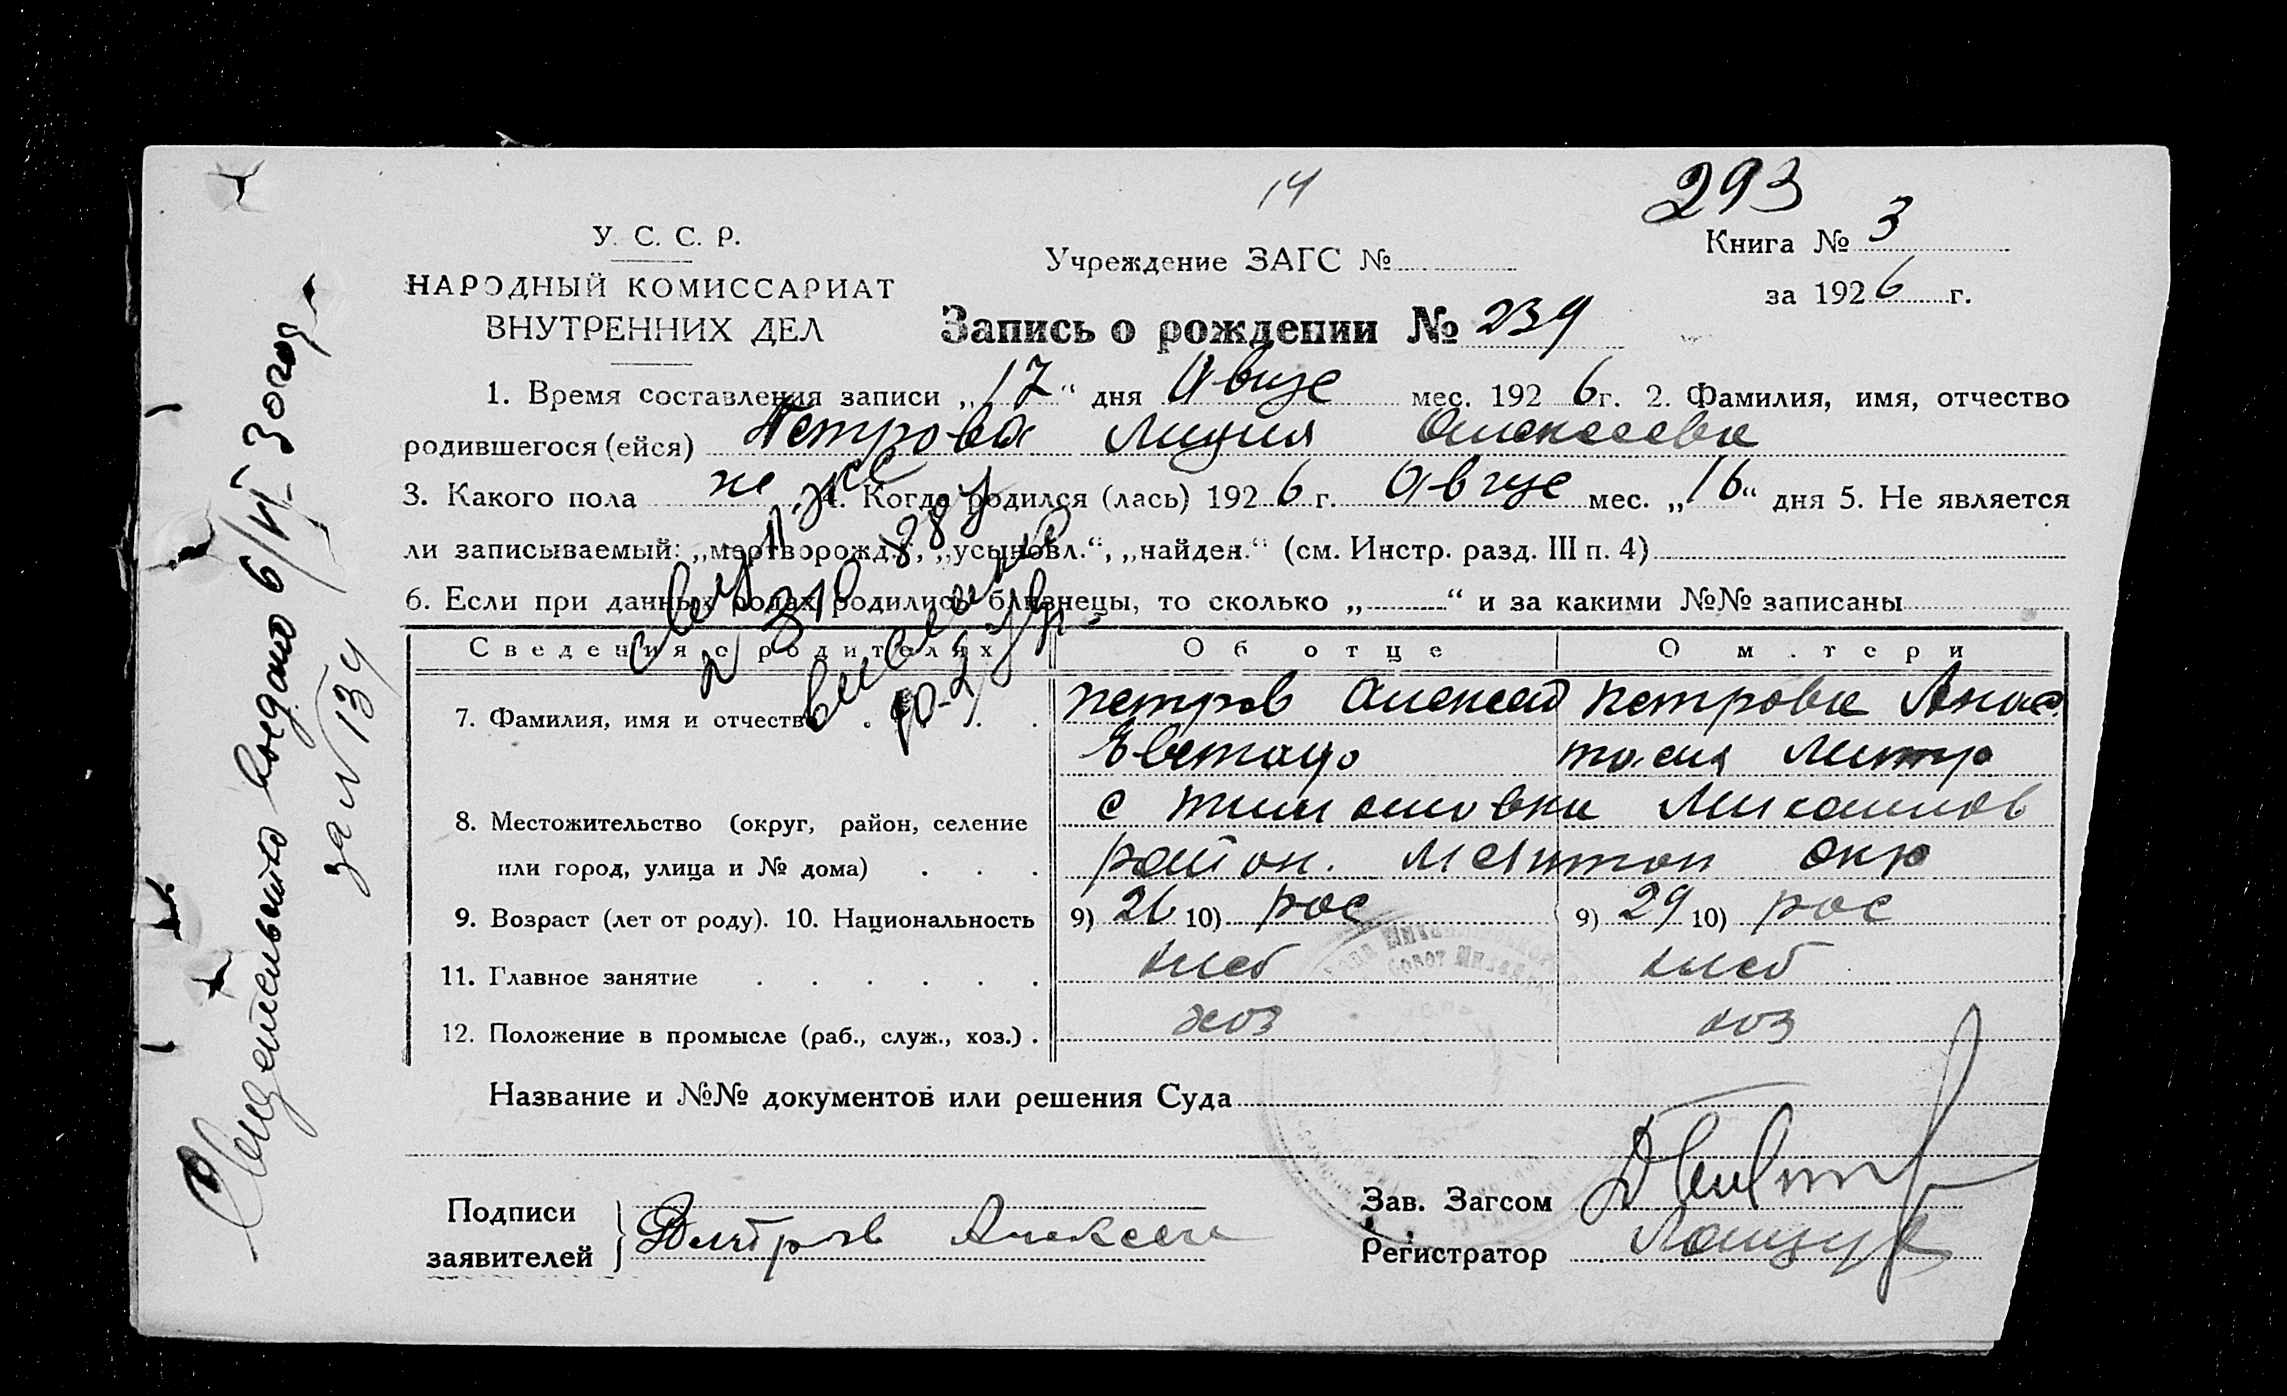 14
293
У. С. С. Р.
НАРОДНЫЙ КОМИССАРИАТ
ВНУТРЕННИХ ДЕЛ
Учреждение ЗАГС №
Книга № 3
за 1926 г.
Запись о рождении № 239
1. Время составления записи „17“ дня Авгус мес. 1926 г. 2. Фамилия, имя, отчество
родившегося (ейся) Петрова Лидия Алексеевна
3. Какого пола ж 4. Когда родился (лась) 1926 г. Авгус мес. „16“ дня 5. Не является
ли записываемый: „мертворожд.“, „усыновл.“, „найден.“ (см. Инстр. разд. III п. 4)
6. Если при данных родах родились близнецы, то сколько „ “ и за какими №№ записаны
Сведения о родителях Об отце О матери
7. Фамилия, имя и отчество Петров Алексей Петрова Анас
тасия
8. Местожительство (округ, район, селение с Тимошовки Михаилов
или город, улица и № дома) район. Мелитоп окр
9. Возраст (лет от роду). 10. Национальность 9) 26 10) рос 9) 29 10) рос
11. Главное занятие хлеб хлеб
12. Положение в промысле (раб., служ., хоз.) хоз хоз
Название и №№ документов или решения Суда
Подписи
заявителей Петров Алексей
Зав. Загсом
Регистратор
Свидетельство выдано 6/VI 30 года
за № 134